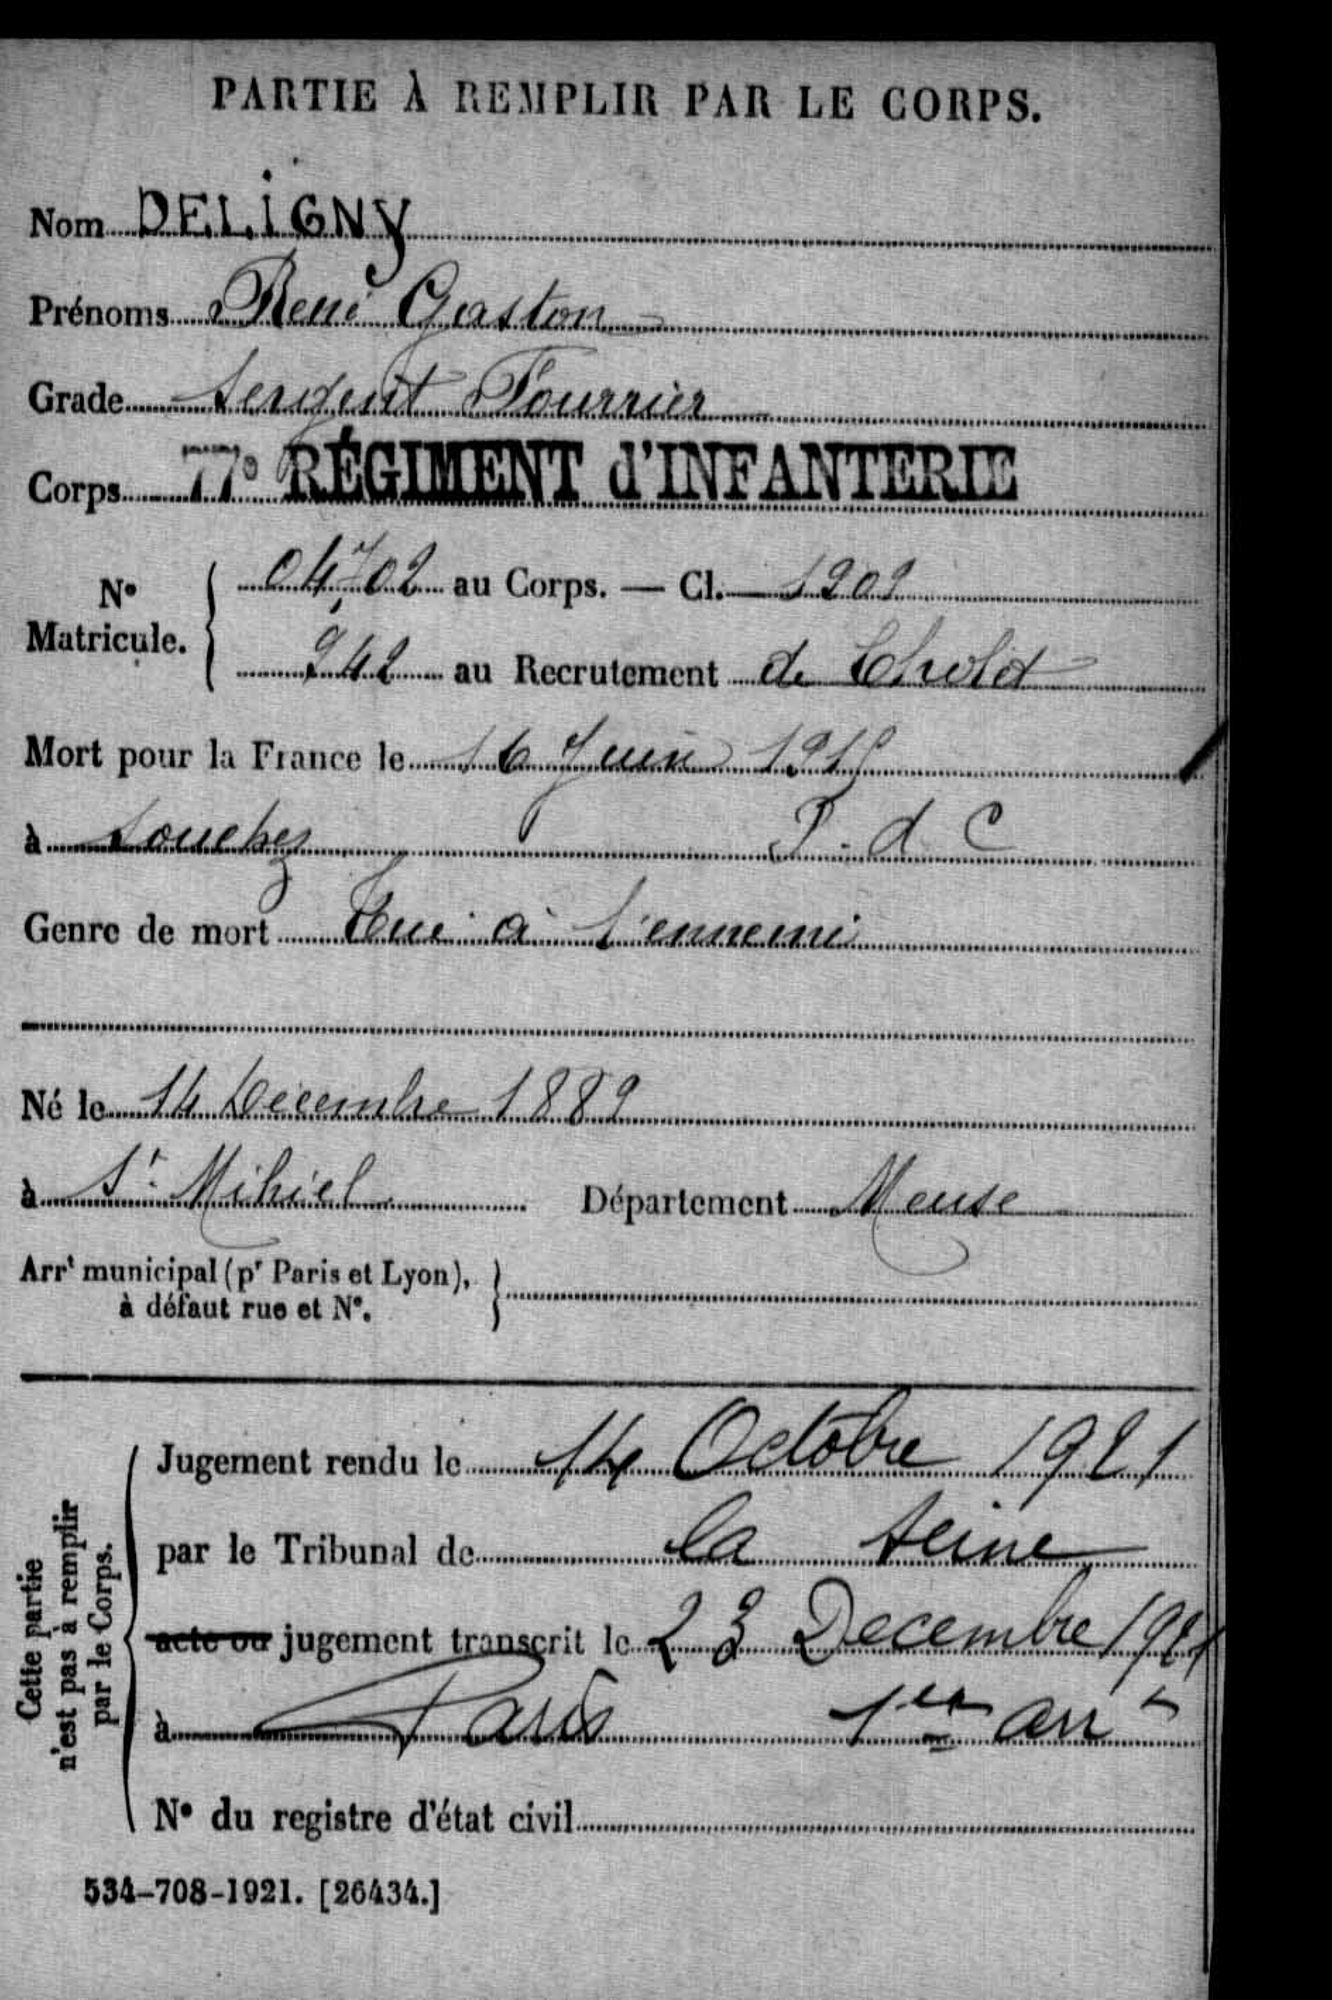 PARTIE À REMPLIR PAR LE CORPS.
Nom DELIGNY
Prénoms René Gaston
Grade Sergent Fourrier
Corps 77e RÉGIMENT d'INFANTERIE
N° Matricule. 04702 au Corps. — Cl. 1909
942 au Recrutement de Cholet
Mort pour la France le 16 Juin 1915
à Souchez P. d C
Genre de mort Tué à l'ennemi
Né le 14 Décembre 1889
à St. Mihiel Département Meuse
Arrt municipal (pr Paris et Lyon), à défaut rue et N°.
Cette partie n'est pas à remplir par le Corps.
Jugement rendu le 14 Octobre 1921
par le Tribunal de la Seine
acte ou jugement transcrit le 23 Decembre 1921
à Paris 1er arrt
N° du registre d'état civil
534-708-1921. [26434.]